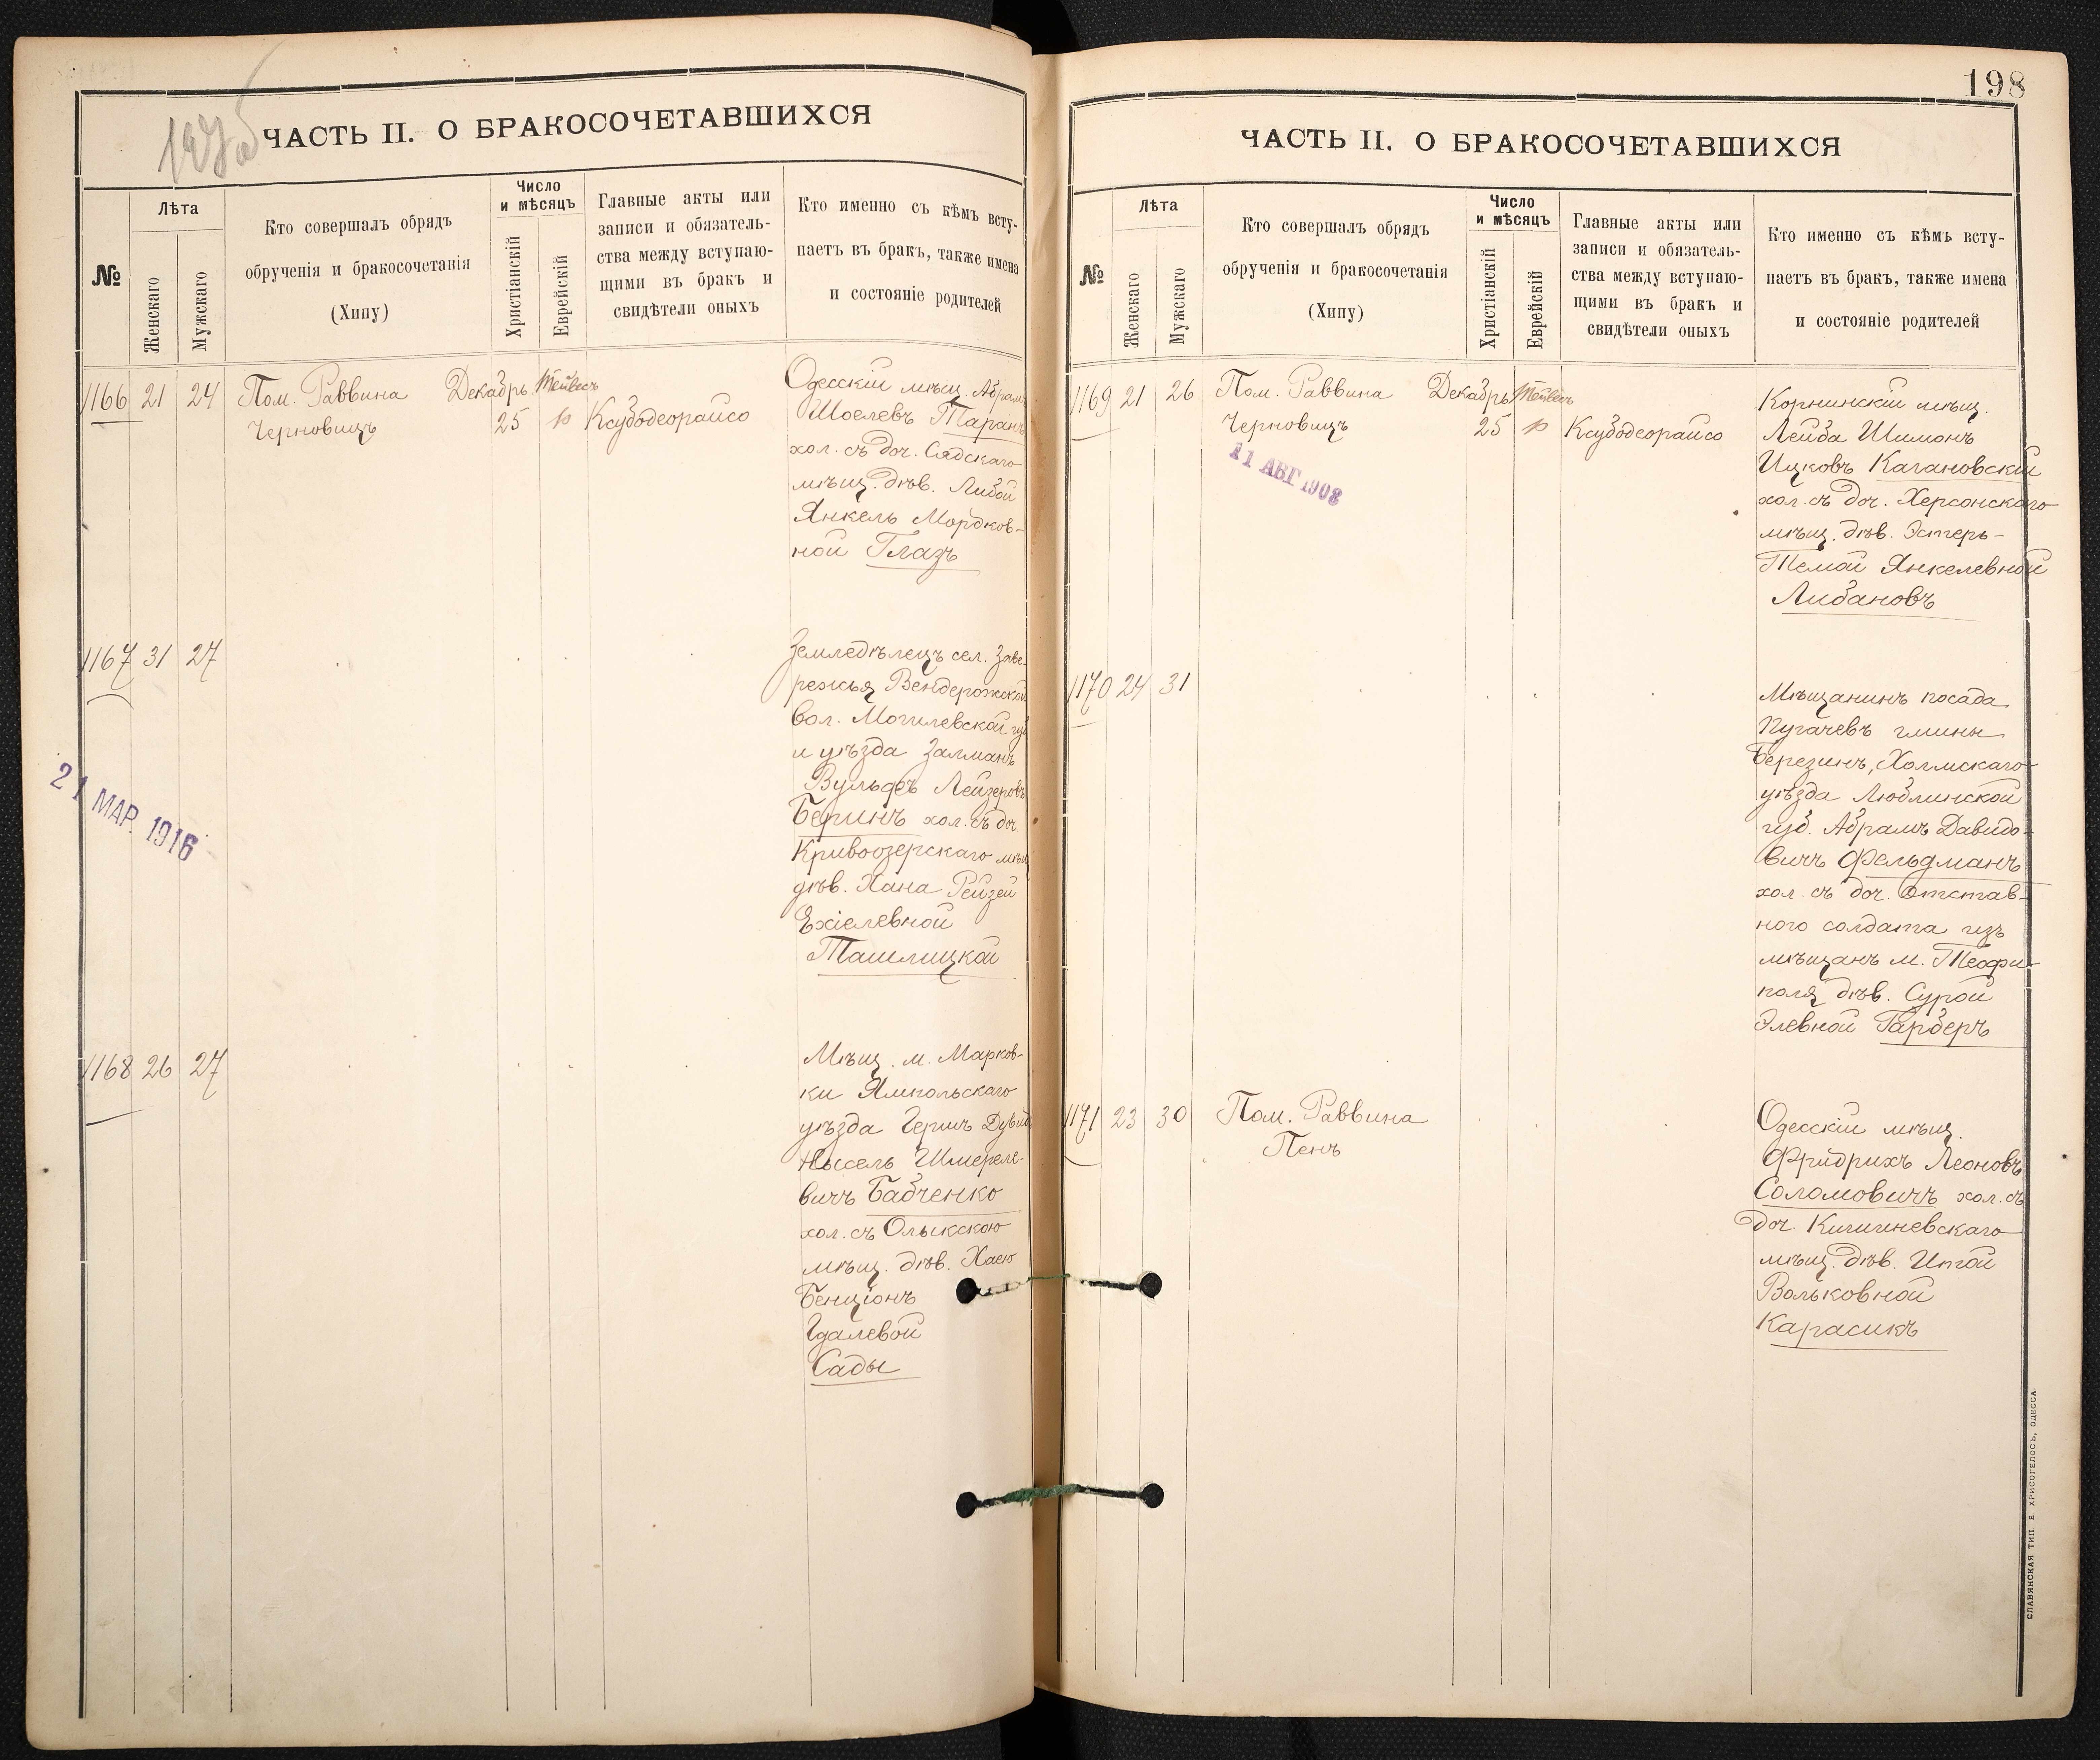 ЧАСТЬ II. О БРАКОСОЧЕТАВШИХСЯ
№
Лѣта
Женскаго
Мужскаго
Кто совершалъ обрядъ
обрученія и бракосочетанія
(Хипу)
Число
и мѣсяцъ
Христіанскій
Еврейскій
Главные акты или
записи и обязатель-
ства между вступаю-
щими въ бракъ и
свидѣтели оныхъ
Кто именно съ кѣмъ всту-
паетъ въ бракъ, также имена
и состояніе родителей
1166 21 24 Пом. Раввина Декабрь Тейвесъ
Черновицъ 25 Ксубодеорайсо
Одесскій мѣщ. Абрамъ
Шоелевъ Таранъ
хол. съ доч. Сядскаго
мѣщ. дѣв. Либой
Янкель Мордков-
ной Глазъ
1167 31 27
Земледѣлецъ сел. Заве-
режья Вендерожской
вол. Могилевской губ
и уѣзда Залманъ
Вульфъ Лейзеровъ
Беринъ хол. съ доч.
Кривоозерскаго мѣщ
дѣв. Хана Рейзей
Ехіелевной
Ташлицкой
21 МАР. 1916
1168 26 27
Мѣщ. м. Марков-
ки Ямпольскаго
уѣзда Гершъ Дувид
Нысель Шмереле-
вичъ Бабченко
хол. съ Олыкскою
мѣщ. дѣв. Хаею
Бенціонъ
Гдалевой
Сады
198
ЧАСТЬ II. О БРАКОСОЧЕТАВШИХСЯ
№
Лѣта
Женскаго
Мужскаго
Кто совершалъ обрядъ
обрученія и бракосочетанія
(Хипу)
Число
и мѣсяцъ
Христіанскій
Еврейскій
Главные акты или
записи и обязатель-
ства между вступаю-
щими въ бракъ и
свидѣтели оныхъ
Кто именно съ кѣмъ всту-
паетъ въ бракъ, также имена
и состояніе родителей
1169 21 26 Пом. Раввина Декабрь Тейвесъ
Черновицъ 25 Ксубодеорайсо
11 АВГ 1908
Корнинскій мѣщ.
Лейба Шимонъ
Ицковъ Кагановскій
хол. съ доч. Херсонскаго
мѣщ. дѣв. Эстеръ-
Темой Янкелевной
Либановъ
1170 24 31
Мѣщанинъ посада
Пугачевъ гмины
Березинъ, Холмскаго
уѣзда Люблинской
губ. Абрамъ Давидо-
вичъ Фельдманъ
хол. съ доч. отстав-
ного солдата изъ
мѣщанъ м. Теофи-
поля дѣв. Сурой
Элевной Гарберъ
1171 23 30 Пом. Раввина
Пенъ
Одесскій мѣщ.
Фридрихъ Леоновъ
Соломовичъ хол. съ
доч. Кишиневскаго
мѣщ. дѣв. Итой
Вольковной
Карасикъ
СЛАВЯНСКАЯ ТИП. Е. ХРИСОГЕЛОСЪ, ОДЕССА.